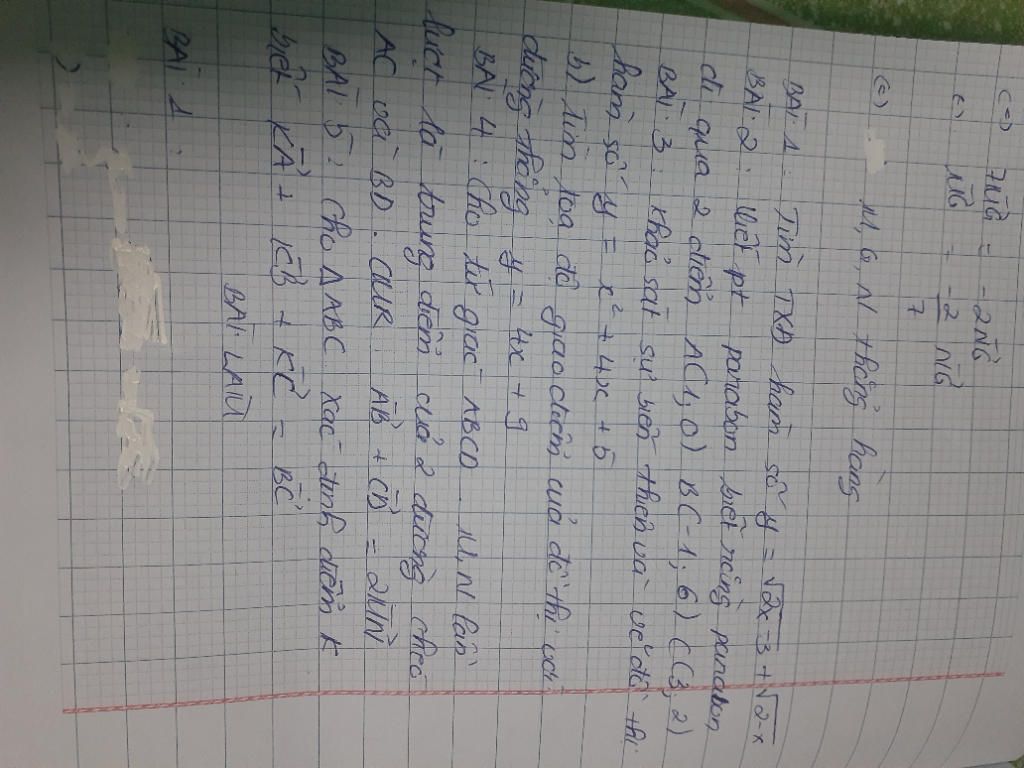 (=) 7MG = -2NG
(=) MG = -2/7 NG
(=) M, G, N thẳng hàng
BÀI 1: Tìm TXĐ hàm số y = √2x-3 + √2-x
BÀI 2: Viết pt parabon biết rằng parabon
đi qua 2 điểm A(1,0) B(-1,6) C(3,2)
BÀI 3: Khảo sát sự biến thiên và vẽ đồ thị
hàm số y = x² + 4x + 5
b) Tìm toạ độ giao điểm của đồ thị với
đường thẳng y = 4x + 9
BÀI 4: Cho tứ giác ABCD. M, N lần
lượt là trung điểm của 2 đường chéo
AC và BD. CMR: AB + CD = 2MN
BÀI 5: Cho △ABC xác định điểm K
biết KA + KB + KC = BC
BÀI LÀM
BÀI 1